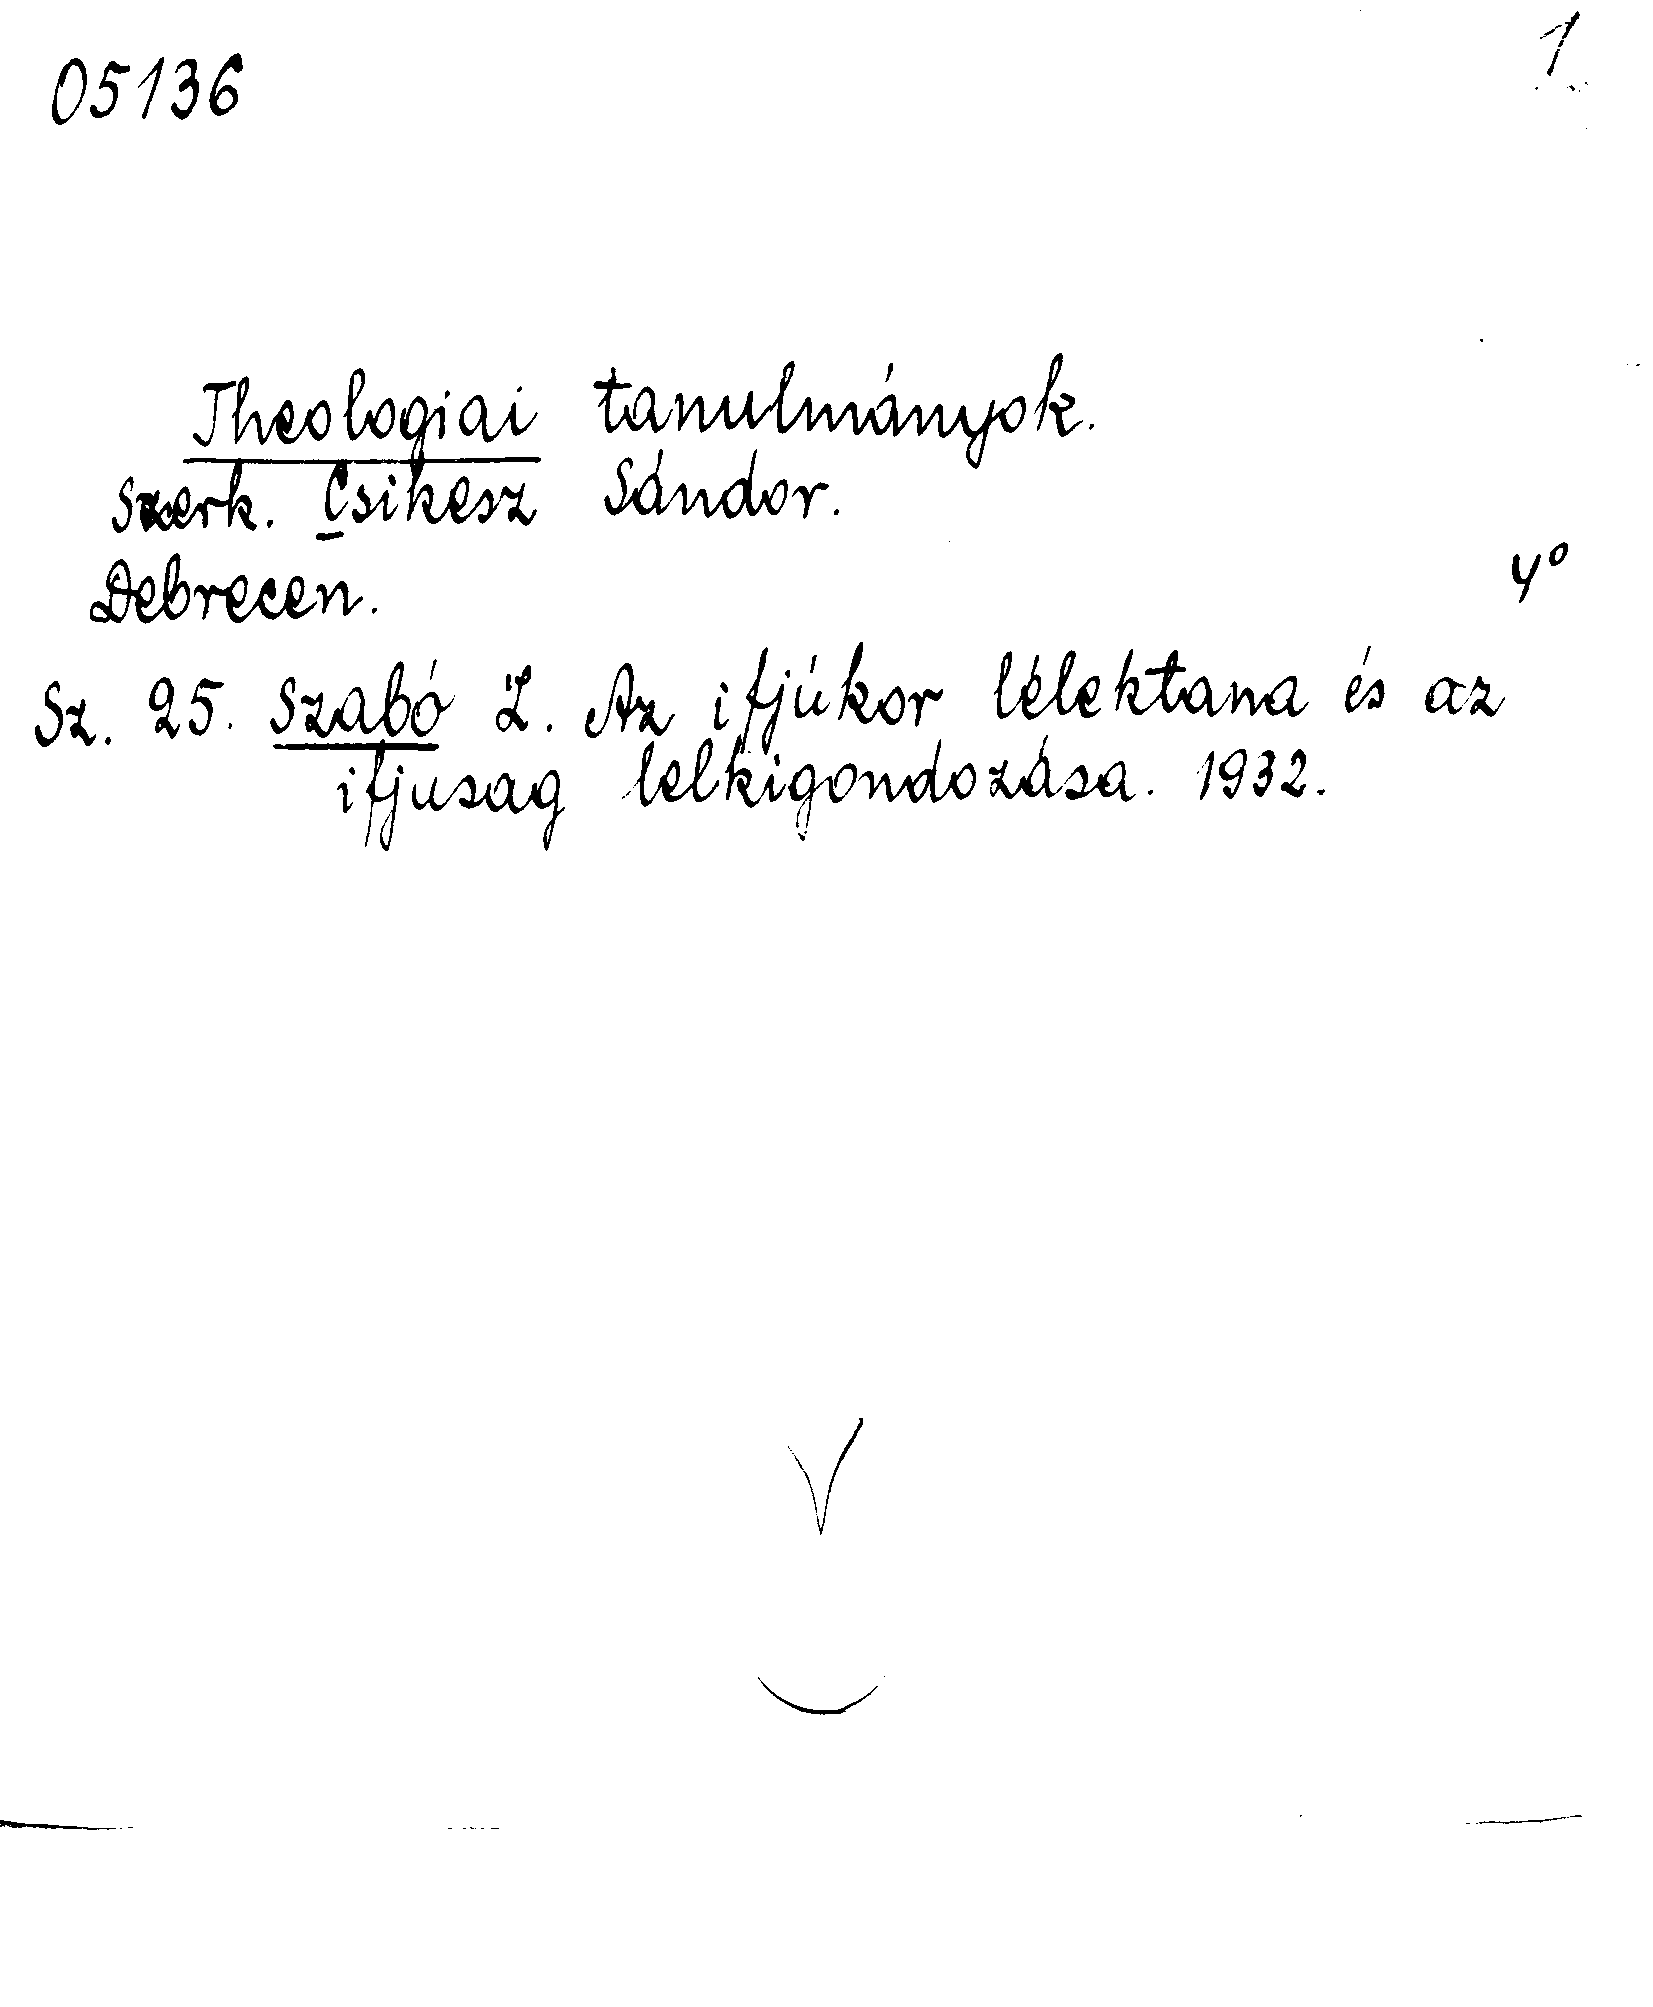 05136
1
Theologiai tanulmányok.
Szerk. Csikesz Sándor.
Debrecen. 4°
Sz. 25. Szabó Z. Az ifjúkor lélektana és az
ifjusag lelkigondozása. 1932.